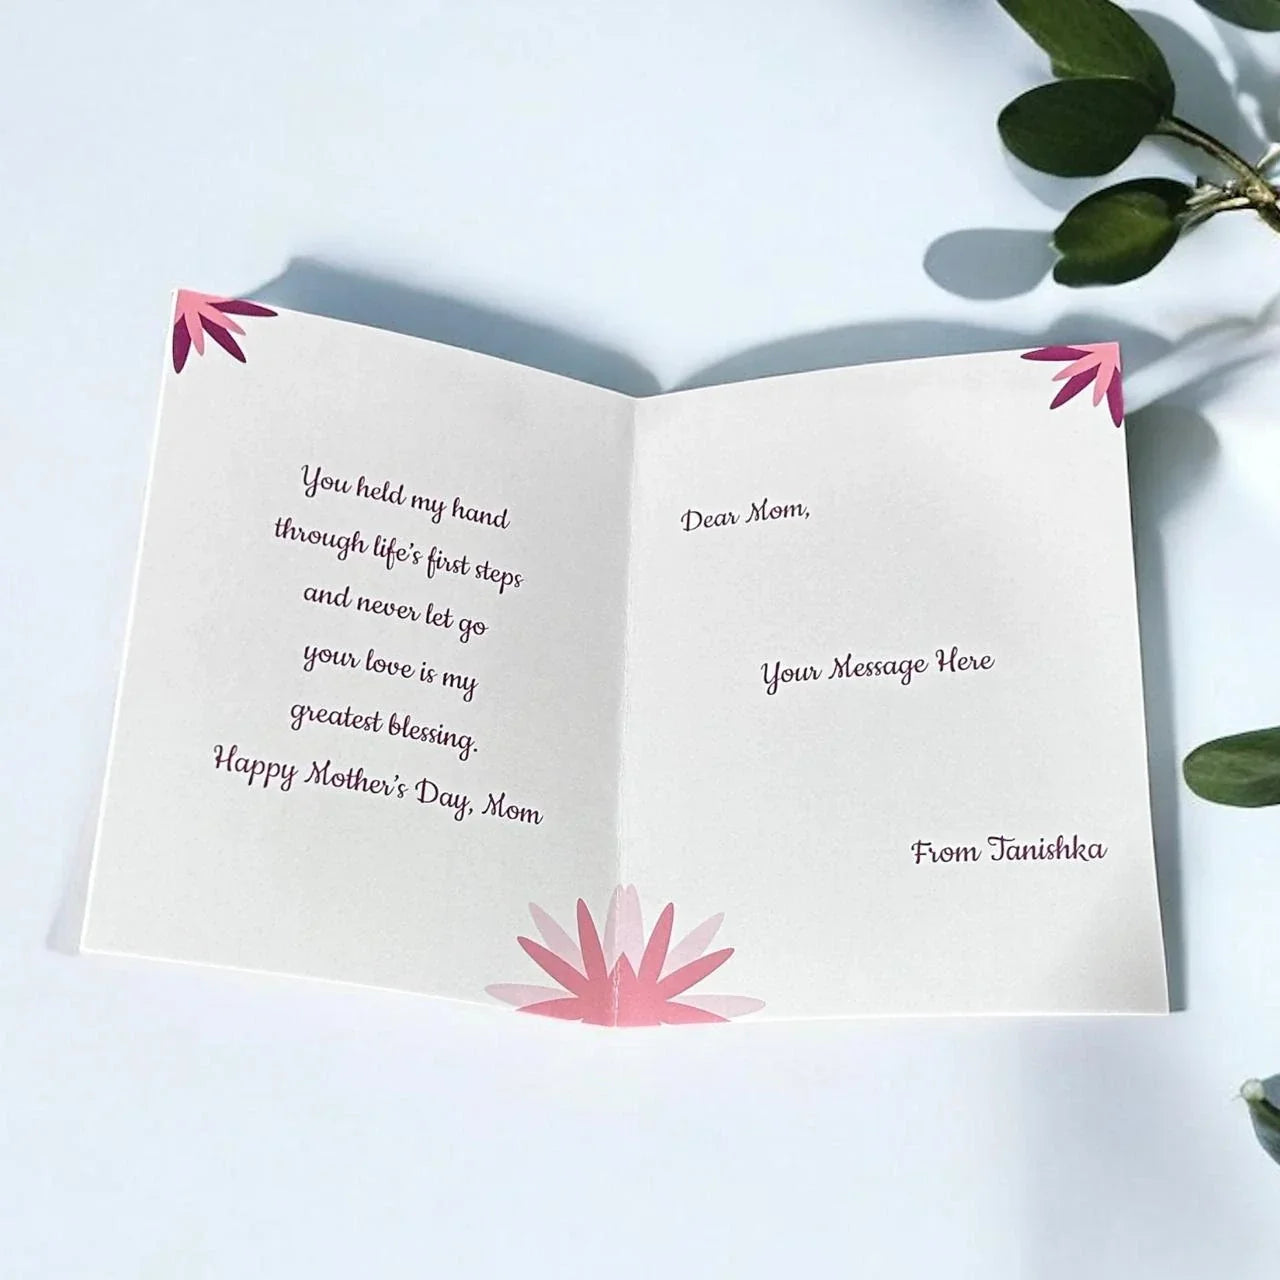 You held my hand
through life's first steps
and never let go
your love is my
greatest blessing.
Happy Mother's Day, Mom
Dear Mom,
Your Message Here
From Tanishka